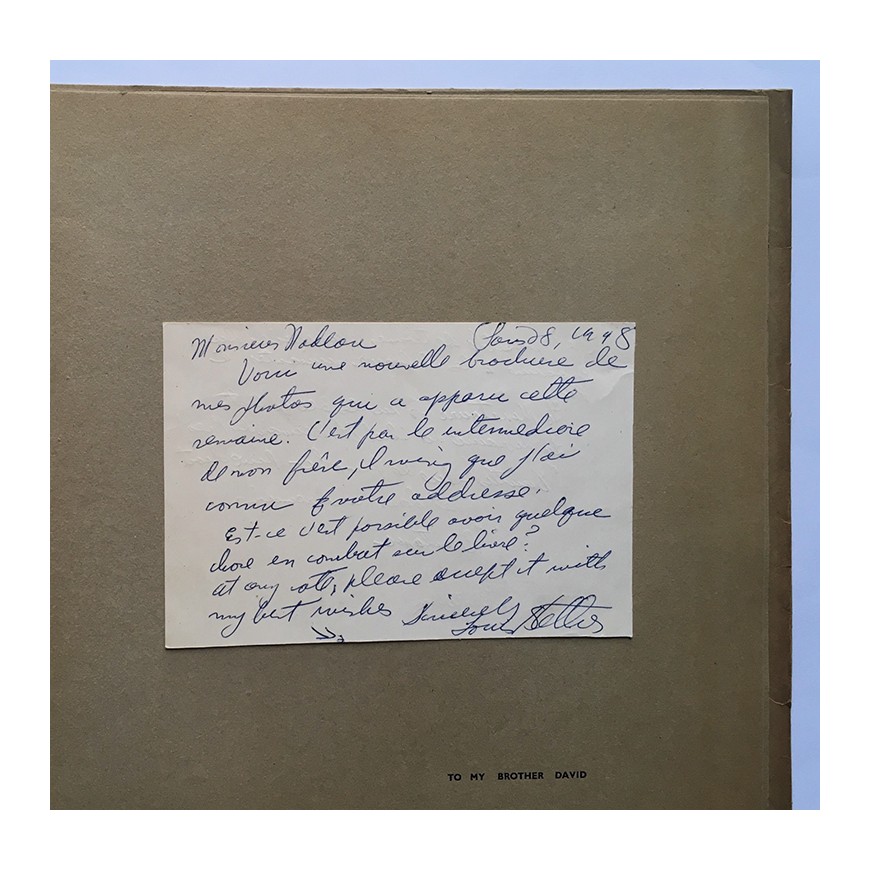 Monsieur Nadeau Paris 8, 1948
Voici une nouvelle brochure de
mes photos qui a apparu cette
semaine. C'est par le intermediare
de mon frère, que j'ai
connu votre addresse.
Est-ce c'est possible avoir quelque
chose en combat sur le livre?
at any rate, please accept it with
my best wishes Sincerely
Louis Stettner
TO MY BROTHER DAVID